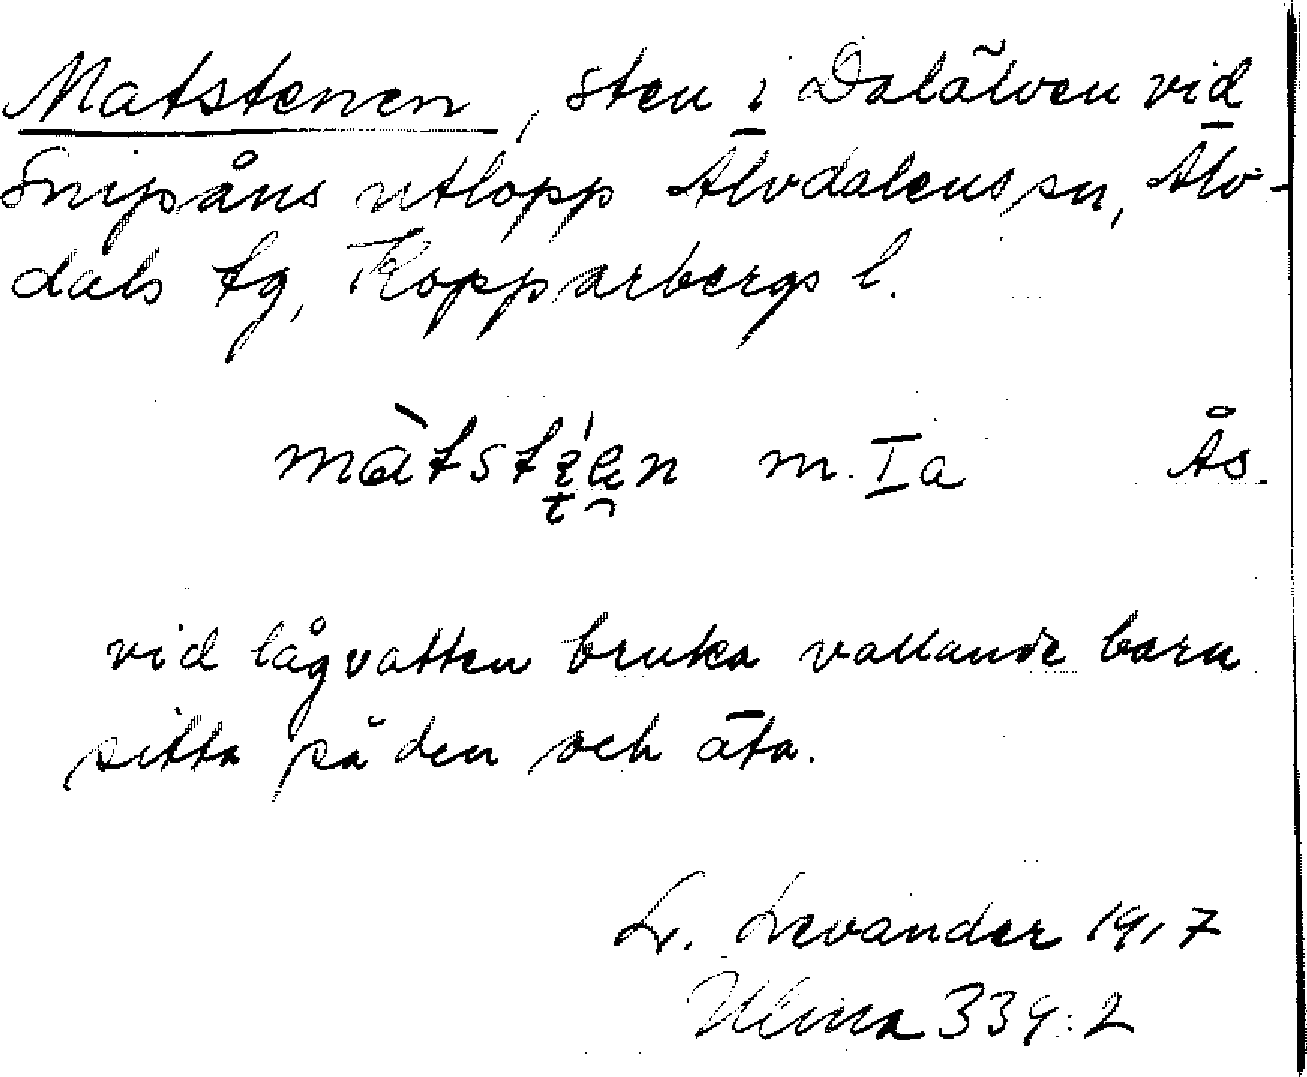 Matstenen, sten i Dalälven vid
Snipåns utlopp Älvdalens sn, Älv-
dals tg, Kopparbergs l.
m. Ia Ås.
vid lågvatten bruka vallande barn
sitta på den och äta.
L. Levander 1917
Ulma 339:2